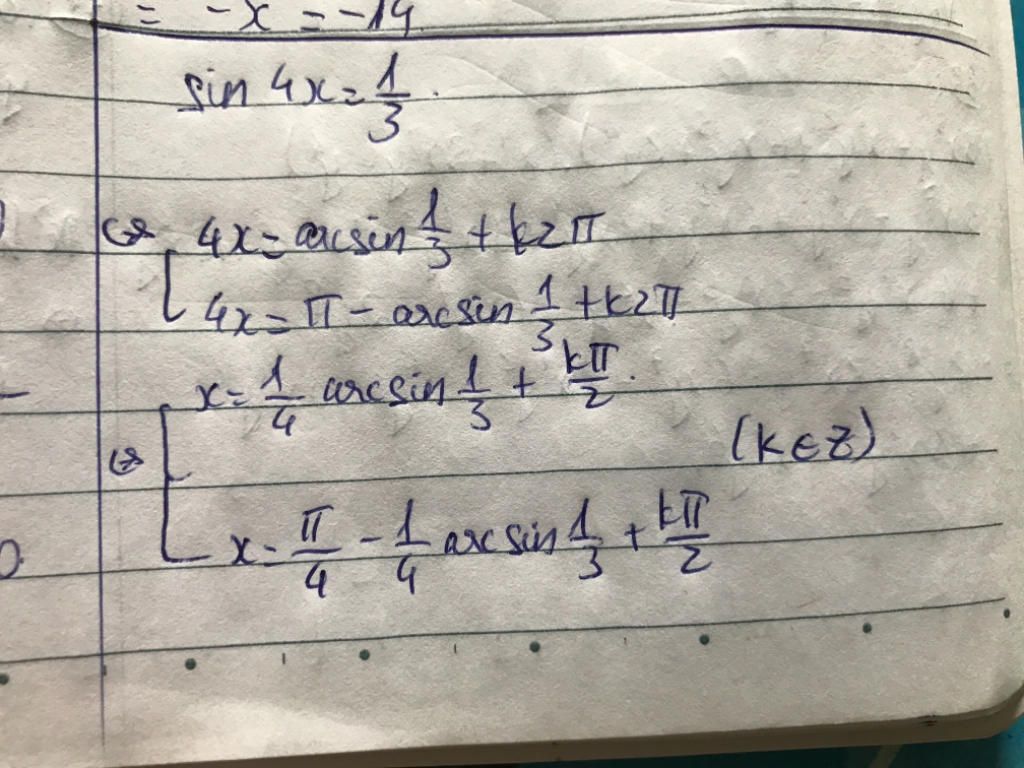 = -x = -14
sin 4x = 1/3.
⇔ [ 4x = arcsin 1/3 + k2π
4x = π - arcsin 1/3 + k2π
⇔ [ x = 1/4 arcsin 1/3 + kπ/2.
(k ∈ Z)
x = π/4 - 1/4 arcsin 1/3 + kπ/2